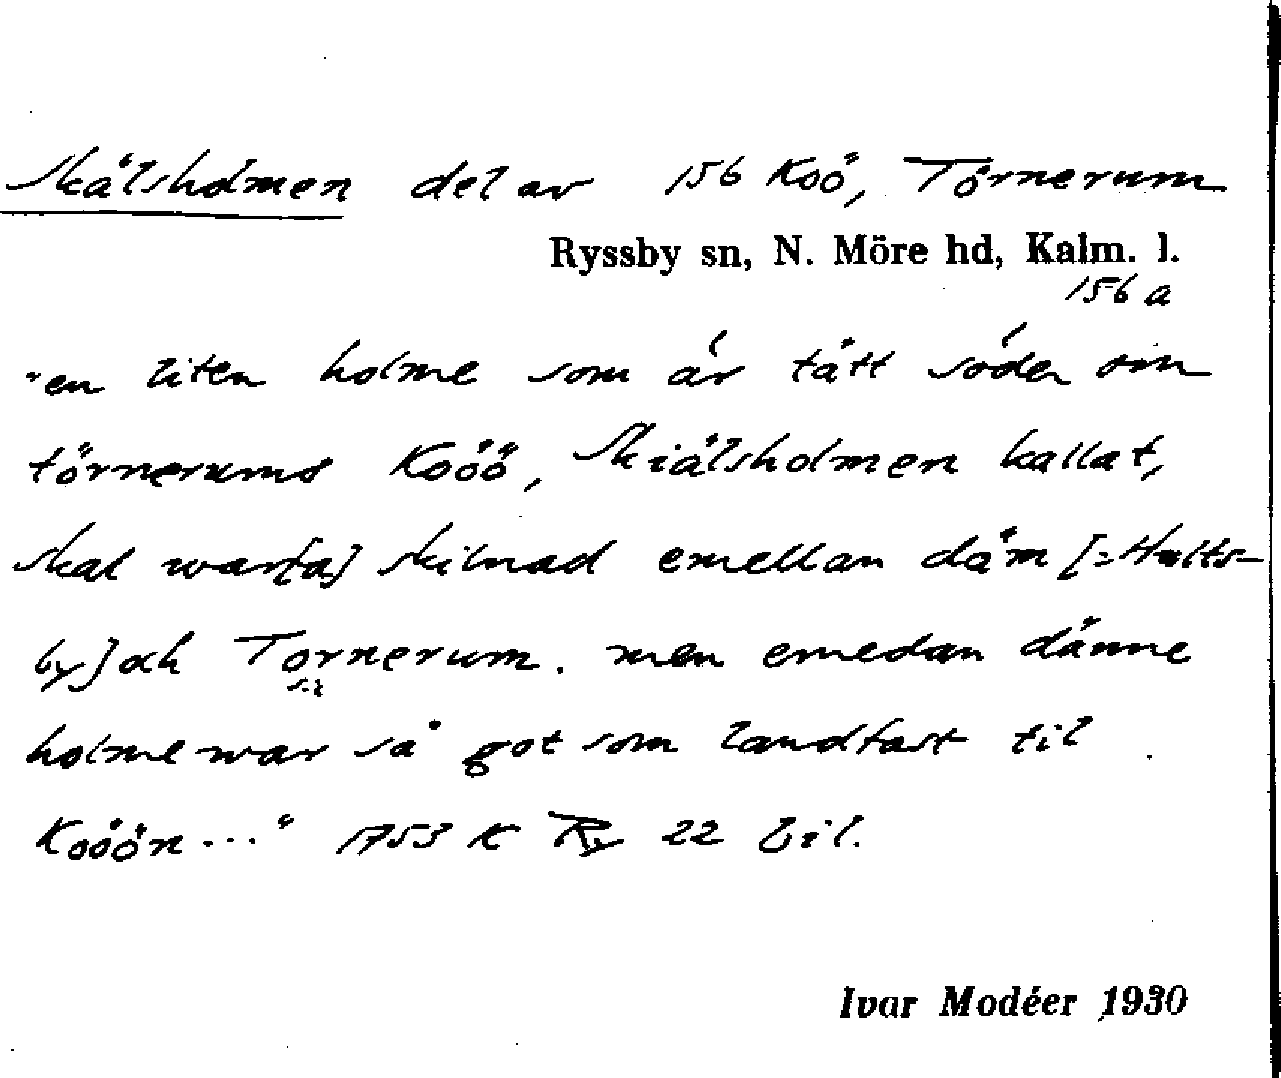 Skälsholmen del av 156 Koö, Törnerum
Ryssby sn, N. Möre hd, Kalm. l.
156 a
"en liten holme som är tätt söder om
törnerums Koöö, Skiälsholmen kallat,
skal war[a] skilnad emellan däm [= Hults-
by] och Tornerum. men emedan dänne
holme war så got som landfast til
Koöön ..." 1753 K Ry 22 bil.
Ivar Modéer 1930